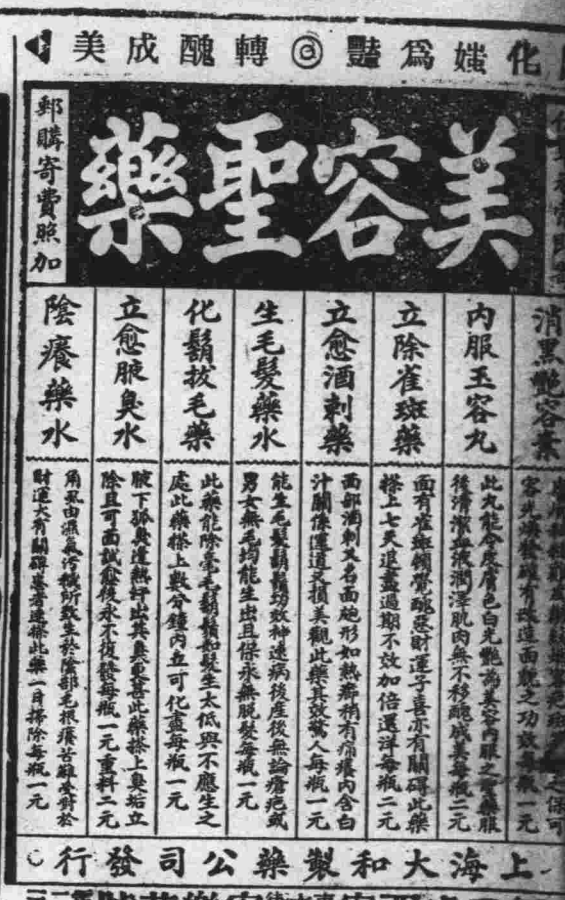 化媸爲豔◎轉醜成美
美容聖藥
郵購寄費照加
消黑艷容素
容光煥發
面貌之功效每瓶一元
內服玉容丸
此丸能令皮膚色白光艷爲美容內服之聖藥服
後清潔血液潤澤肌肉無不移醜成美每瓶二元
立除雀斑藥
面有雀斑頓覺醜惡財運子喜亦有關碍此藥
搽上七天退盡過期不效加倍還洋每瓶二元
立愈酒刺藥
面部酒刺又名面皰形如熱痱稍有痛癢內含白
汁關係運道又損美觀此藥其效驚人每瓶一元
生毛髮藥水
能生毛髮鬍鬚功效神速病後產後無論瘡疤或
男女無毛均能生出且保永無脫髮每瓶一元
化鬍拔毛藥
此藥能除毫毛鬍鬚如髮生太低與不應生之
處此藥搽上數分鐘內立可化盡每瓶一元
立愈腋臭水
腋下狐臭逢熱好出其臭此藥搽上臭垢立
除且可面試愈後永不復發每瓶一元重料二元
陰癢藥水
角虱由濕氣污穢所致生於陰部毛根癢苦難受對於
財運大有關碍患者速搽此藥一日掃除每瓶一元
上海大和製藥公司發行